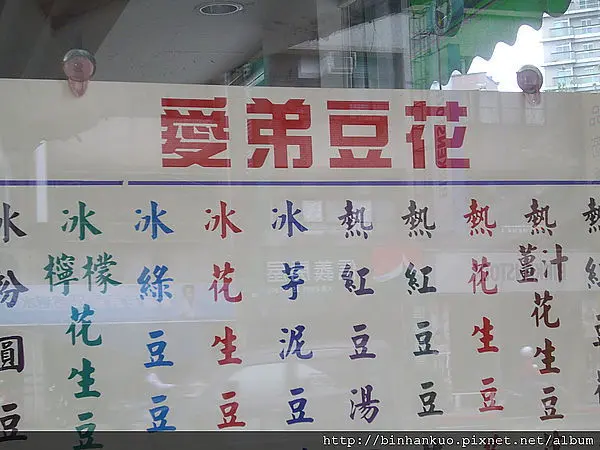 愛弟豆花
冰粉圓豆
冰檸檬花生豆
冰綠豆豆
冰花生豆
冰芋泥豆
熱紅豆湯
熱紅豆豆
熱花生豆
熱薑汁花生豆
熱紅豆
http://binhankuo.pixnet.net/album